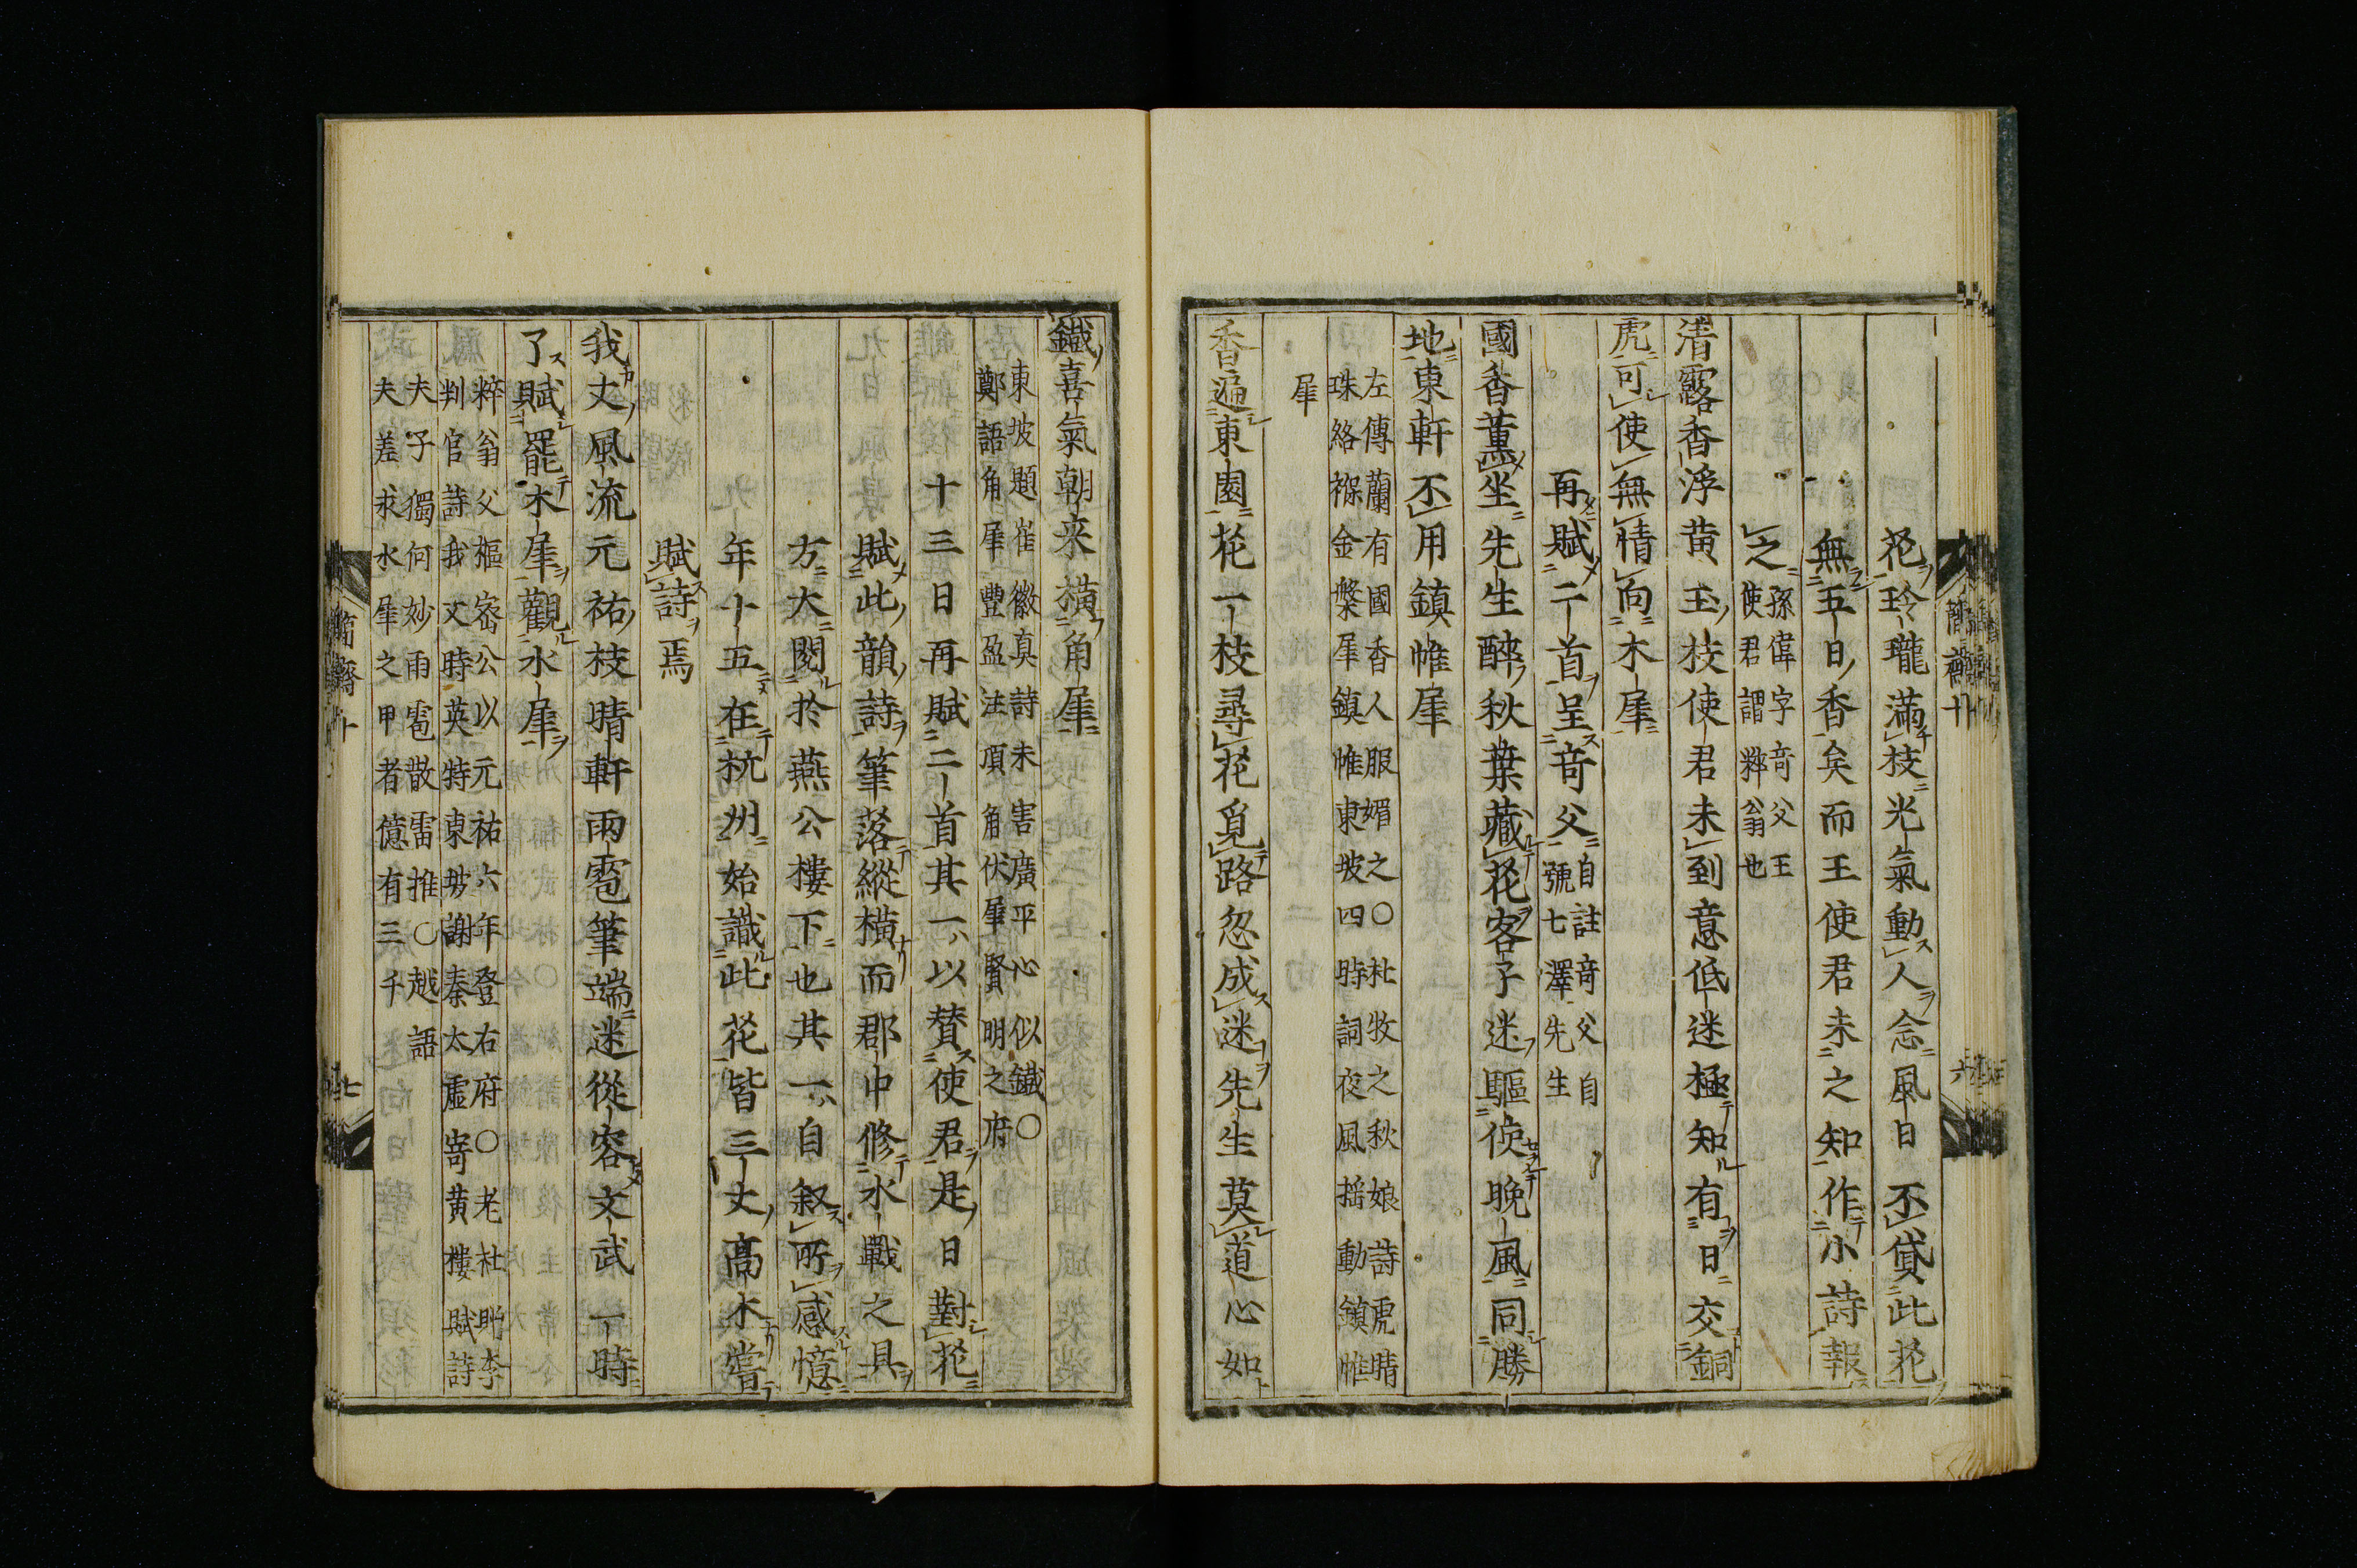 花玲瓏滿枝光氣動人念風日不貸此花
無五日香矣而王使君未之知作小詩報
之孫偉字竒父王使君謂粹翁也
清露香浮黄玉枝使君未到意低迷極知有日交銅
虎可使無情向木犀
再賦二首呈竒父自註竒父自號七澤先生
國香薰坐先生醉秋葉藏花客子迷驅使晚風同勝
地東軒不用鎮帷犀
左傳蘭有國香人服媚之○杜牧之秋娘詩虎睛
珠絡褓金槃犀鎮帷東坡四時詞夜風摇動鎮帷
犀
香遍東園花一枝尋花覓路忽成迷先生莫道心如
鐵喜氣朝来横角犀
東坡題崔徽真詩未害廣平心似鐵○
鄭語角犀豐盈法項角伏犀賢明之府
十三日再賦二首其一以賛使君是日對花
賦此韻詩筆落縱横而郡中修水戰之具
方大閱於燕公樓下也其一自叙所感憶
年十五在杭州始識此花皆三丈髙木嘗
賦詩焉
我丈風流元祐枝晴軒雨雹筆端迷從容文武一時
了賦罷木犀觀水犀
粹翁父樞宻公以元祐六年登右府○老杜贈李
判官詩我丈時英特東坡謝秦太虚寄黄樓賦詩
夫子獨何妙雨雹散雷推○越語
夫差求水犀之甲者億有三千
簡齋十
七
簡齋十
六